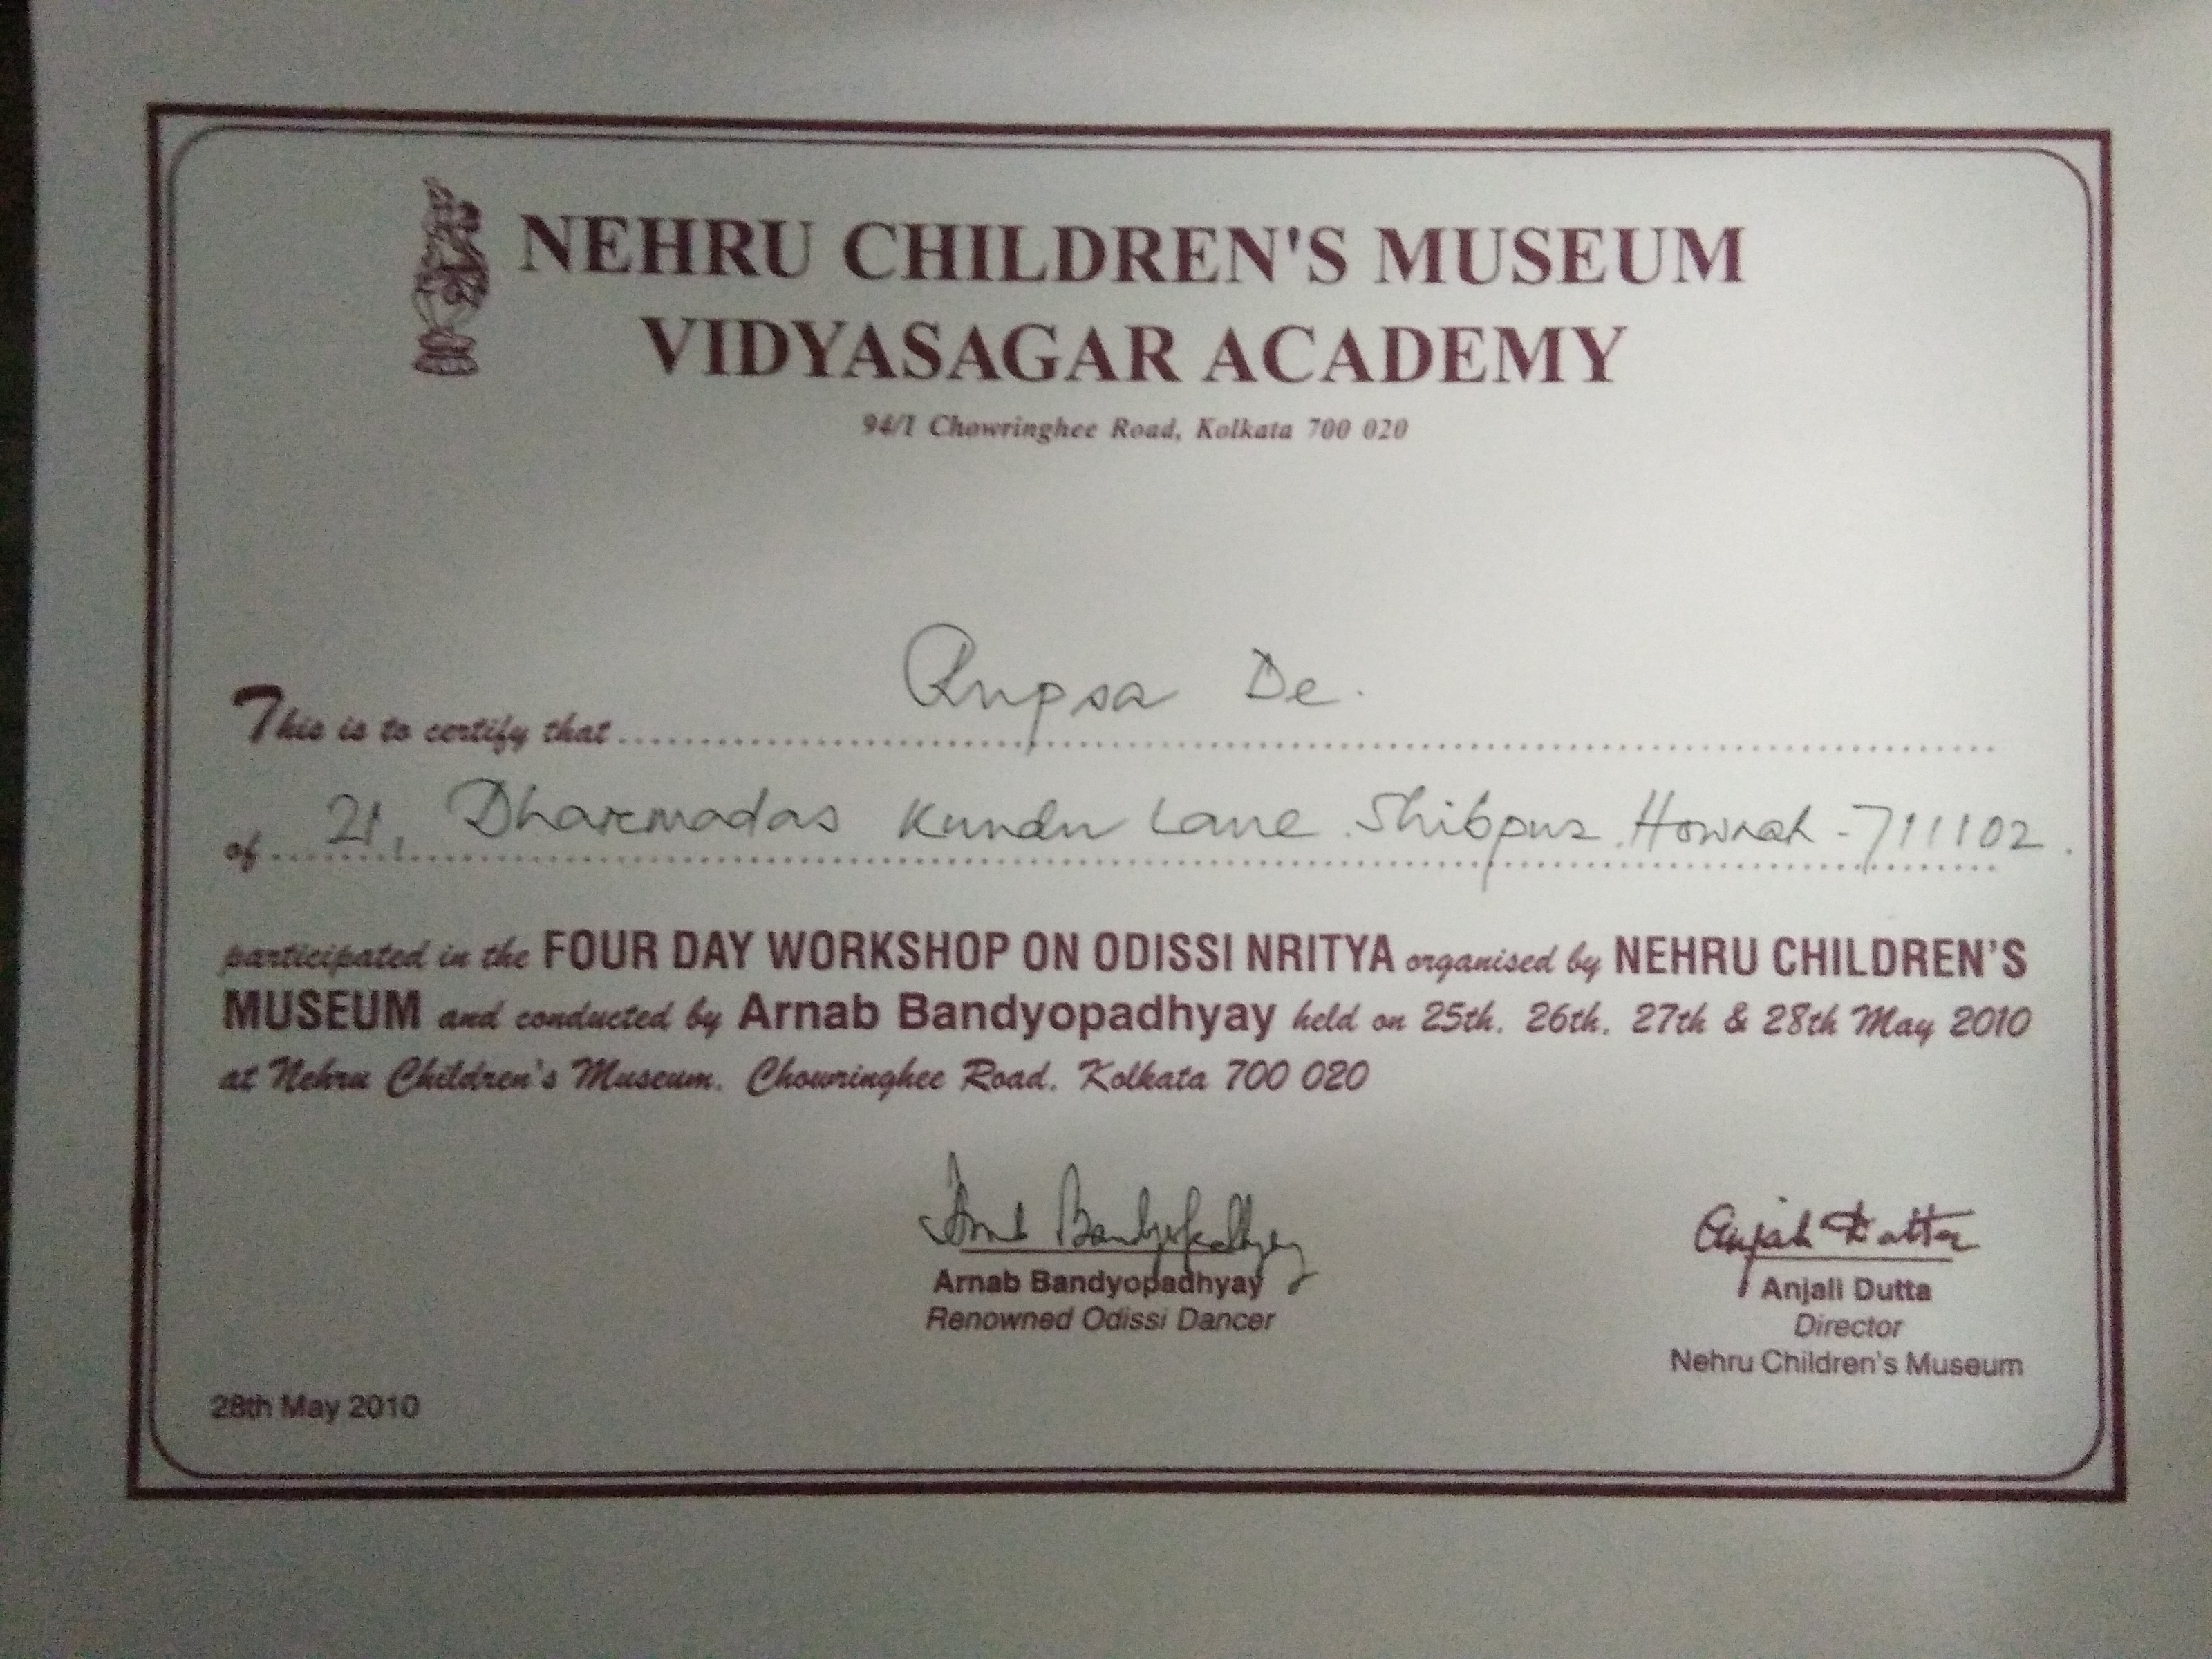 NEHRU CHILDREN'S MUSEUM
VIDYASAGAR ACADEMY
94/1 Chowringhee Road, Kolkata 700 020
This is to certify that Rupsa De.
of 21, Dharmadas Kundu Lane. Shibpur. Howrah - 711102.
participated in the FOUR DAY WORKSHOP ON ODISSI NRITYA organised by NEHRU CHILDREN'S
MUSEUM and conducted by Arnab Bandyopadhyay held on 25th, 26th, 27th & 28th May 2010
at Nehru Children's Museum, Chowringhee Road, Kolkata 700 020
Arnab Bandyopadhyay Anjali Dutta
Arnab Bandyopadhyay Anjali Dutta
Renowned Odissi Dancer Director
Nehru Children's Museum
28th May 2010